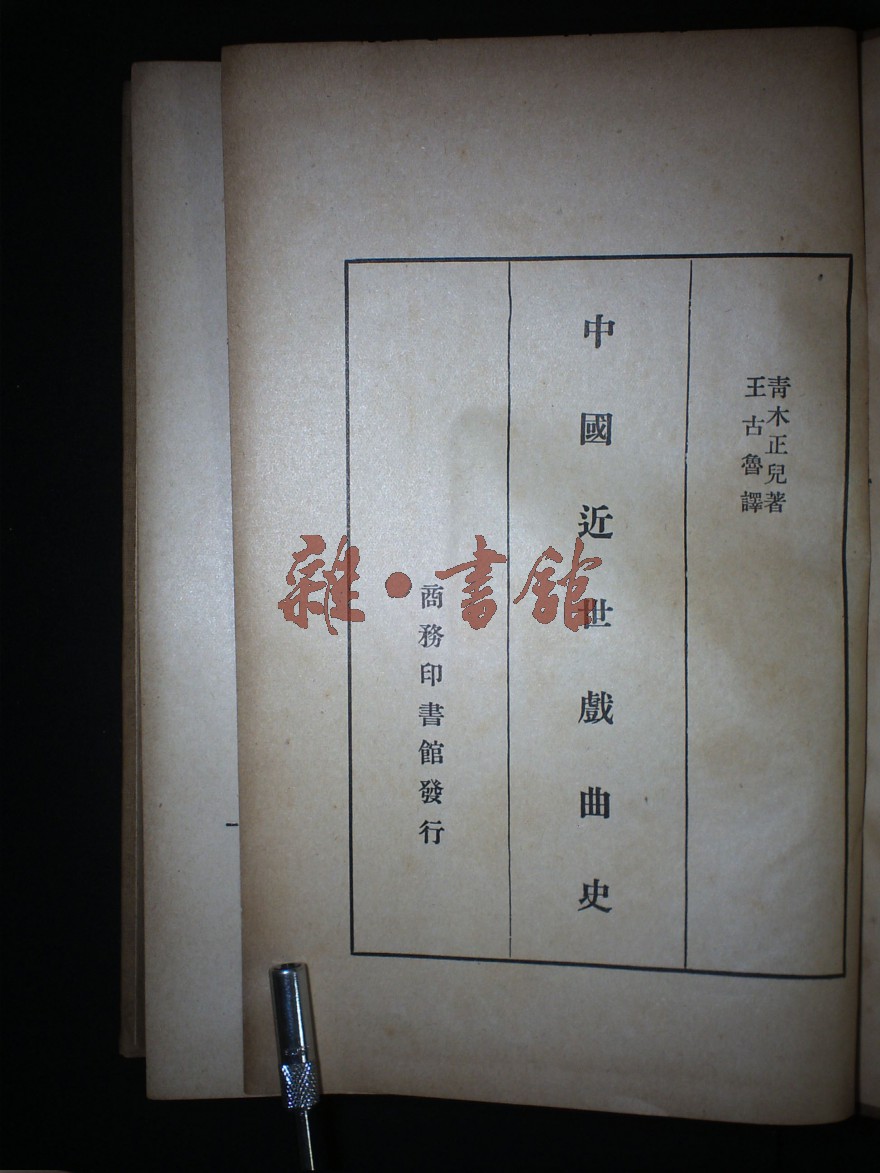 青木正兒著
王古魯譯
中國近世戲曲史
商務印書館發行
雜·書館